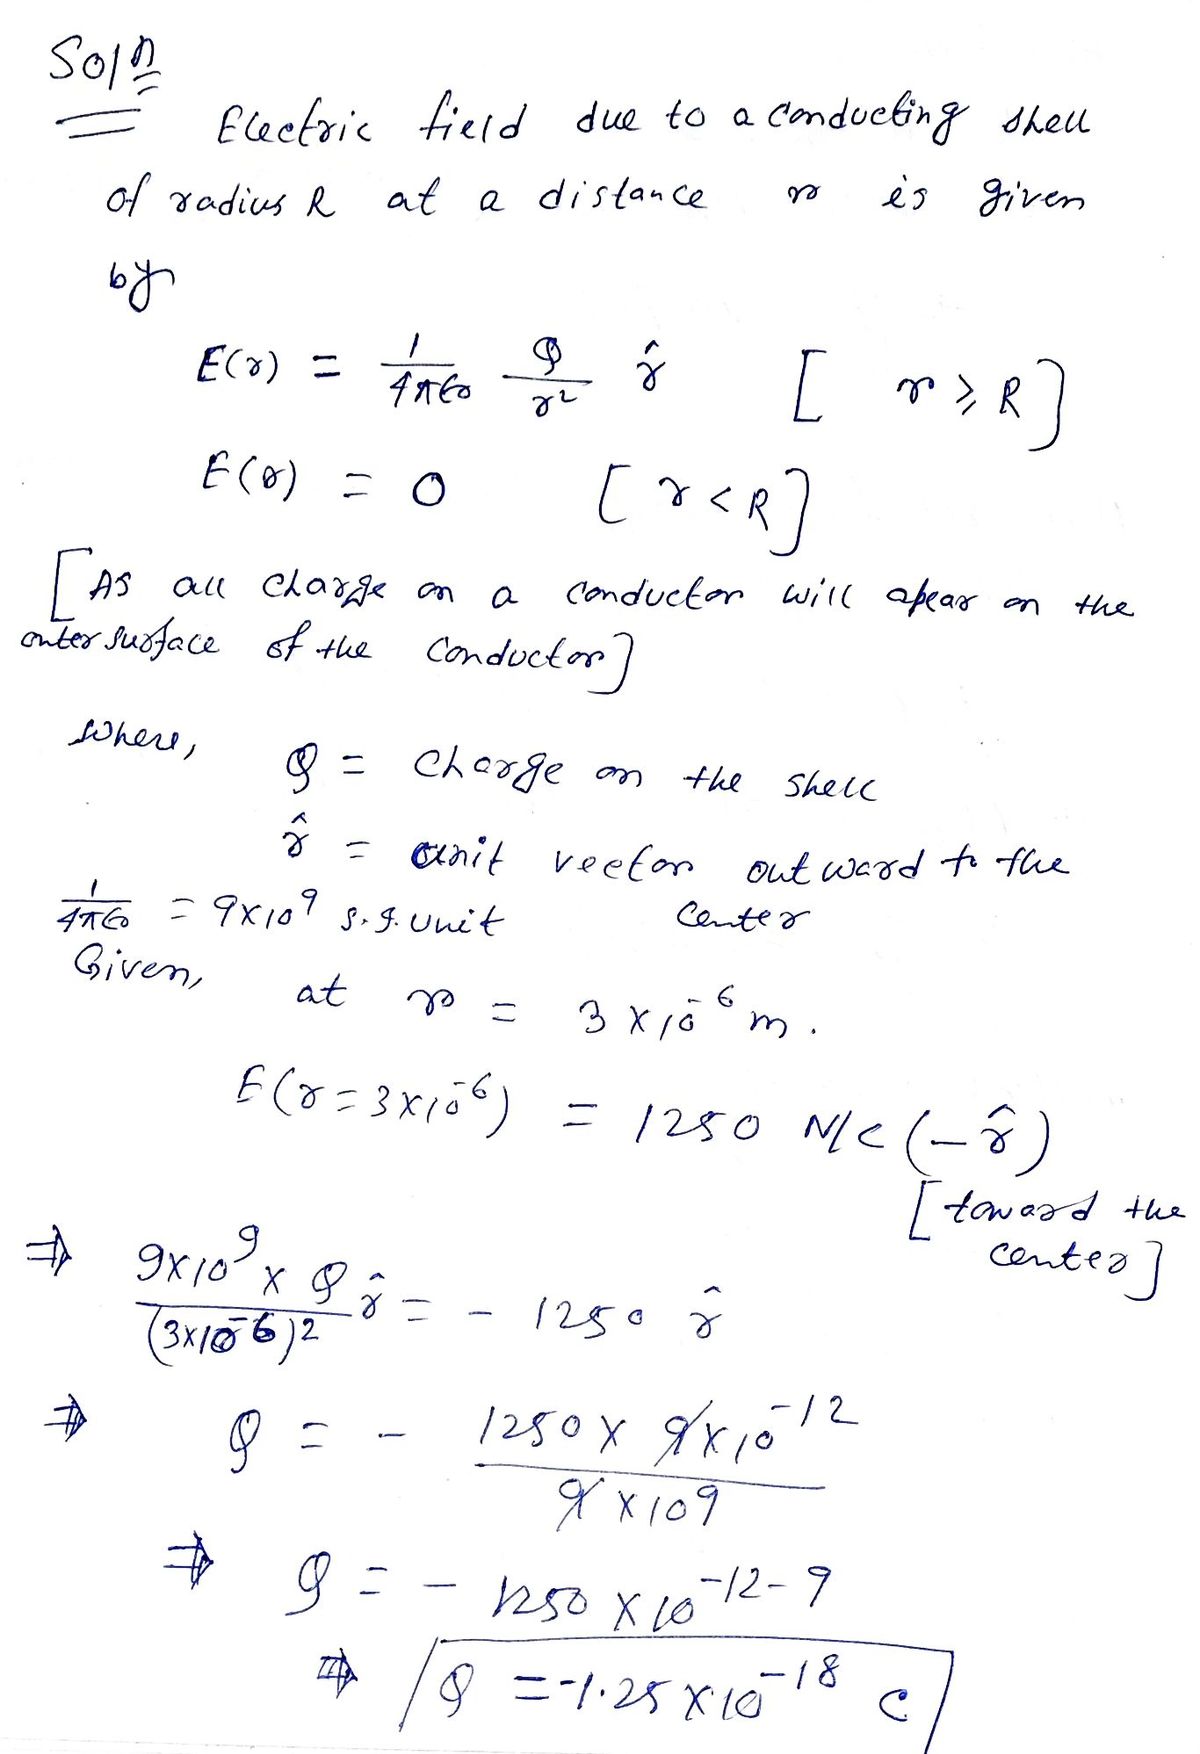 Soln
Electric field due to a conducting shell
of radius R at a distance r is given
by
E(r) = 1/4πϵ0 Q/r² r̂ [ r ⩾ R]
E(r) = 0 [ r < R]
[As all charge on a conductor will apear on the
outer surface of the conductor]
where,
Q = charge on the shell
r̂ = unit vector outward to the
center
1/4πϵ0 = 9×10⁹ S.I. unit
Given,
at r = 3 × 10⁻⁶ m.
E(r = 3×10⁻⁶) = 1250 N/C (–r̂)
[toward the
center]
⇒ 9×10⁹ × Q/(3×10⁻⁶)² r̂ = - 1250 r̂
⇒ Q = - 1250 × 9×10⁻¹²/9 × 10⁹
⇒ Q = - 1250 × 10⁻¹²⁻⁹
⇒ Q = -1.25 × 10⁻¹⁸ C